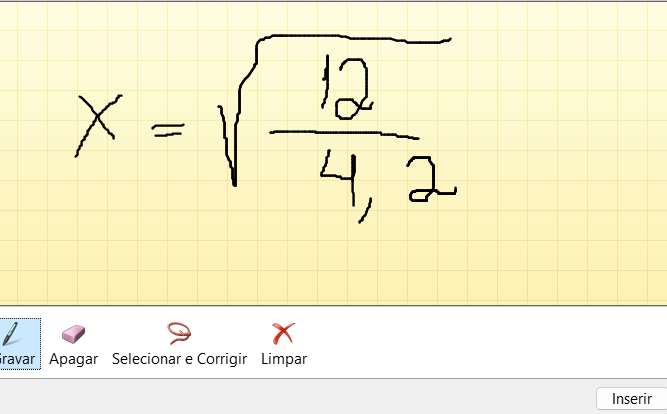 X = √(12/4,2)
Gravar Apagar Selecionar e Corrigir Limpar
Inserir